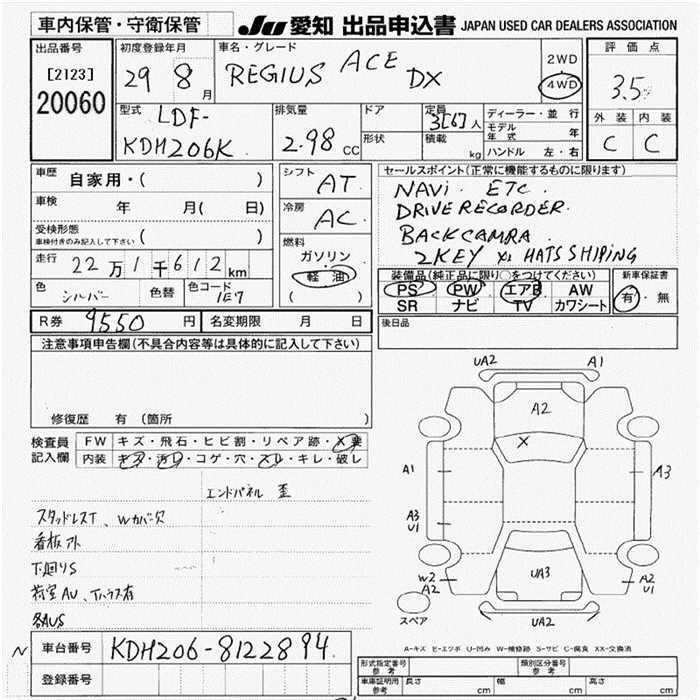 車内保管・守衛保管
JU 愛知 出品申込書 JAPAN USED CAR DEALERS ASSOCIATION
出品番号
[2123]
20060
初度登録年月
29 8 月
車名・グレード
REGIUS ACE DX
2WD
4WD
評価点
3.5
外装 内装
C C
型式
LDF-
KDH206K
排気量
2.98 CC
ドア
形状
定員
3[6]人
積載
kg
ディーラー・並行
モデル年式 年
ハンドル 左・右
車歴
自家用・( )
車検
年 月( 日)
受検形態
車検付きのみ記入して下さい ( )
走行
22万1千612km
色
シルバー
色替
色コード
1E7
シフト
AT
冷房
AC
燃料
ガソリン
軽油
( )
セールスポイント(正常に機能するものに限ります)
NAVi. ETC.
DRIVE RECORDER.
BACK CAMRA.
2KEY ※ HATS SHIPING
装備品(純正品に限り○をつけてください)
PS PW エアB AW
SR ナビ TV カワシート
新車保証書
有・無
R券 9550 円
名変期限 月 日
後日品
注意事項申告欄(不具合内容等は具体的に記入して下さい)
修復歴 有 (箇所 )
検査員記入欄
FW キズ・飛石・ヒビ割・リペア跡・X要
内装 キズ・汚レ・コゲ・穴・スレ・キレ・破レ
エンドパネル 歪
スタッドレスT、Wカバー欠
看板アト
下廻りS
各AUS
UA2 A1
A2
X
A1
A3
A3
U1
W2
A2
UA3
A2
U1
UA2
スペア
A-キズ E-エクボ U-凹み W-補修跡 S-サビ C-腐食 XX-交換済
N
車台番号
KDH206-8122894
登録番号
形式指定番号
参考
類別区分番号
参考
車庫証明用
参考
長さ cm 幅 cm 高さ cm